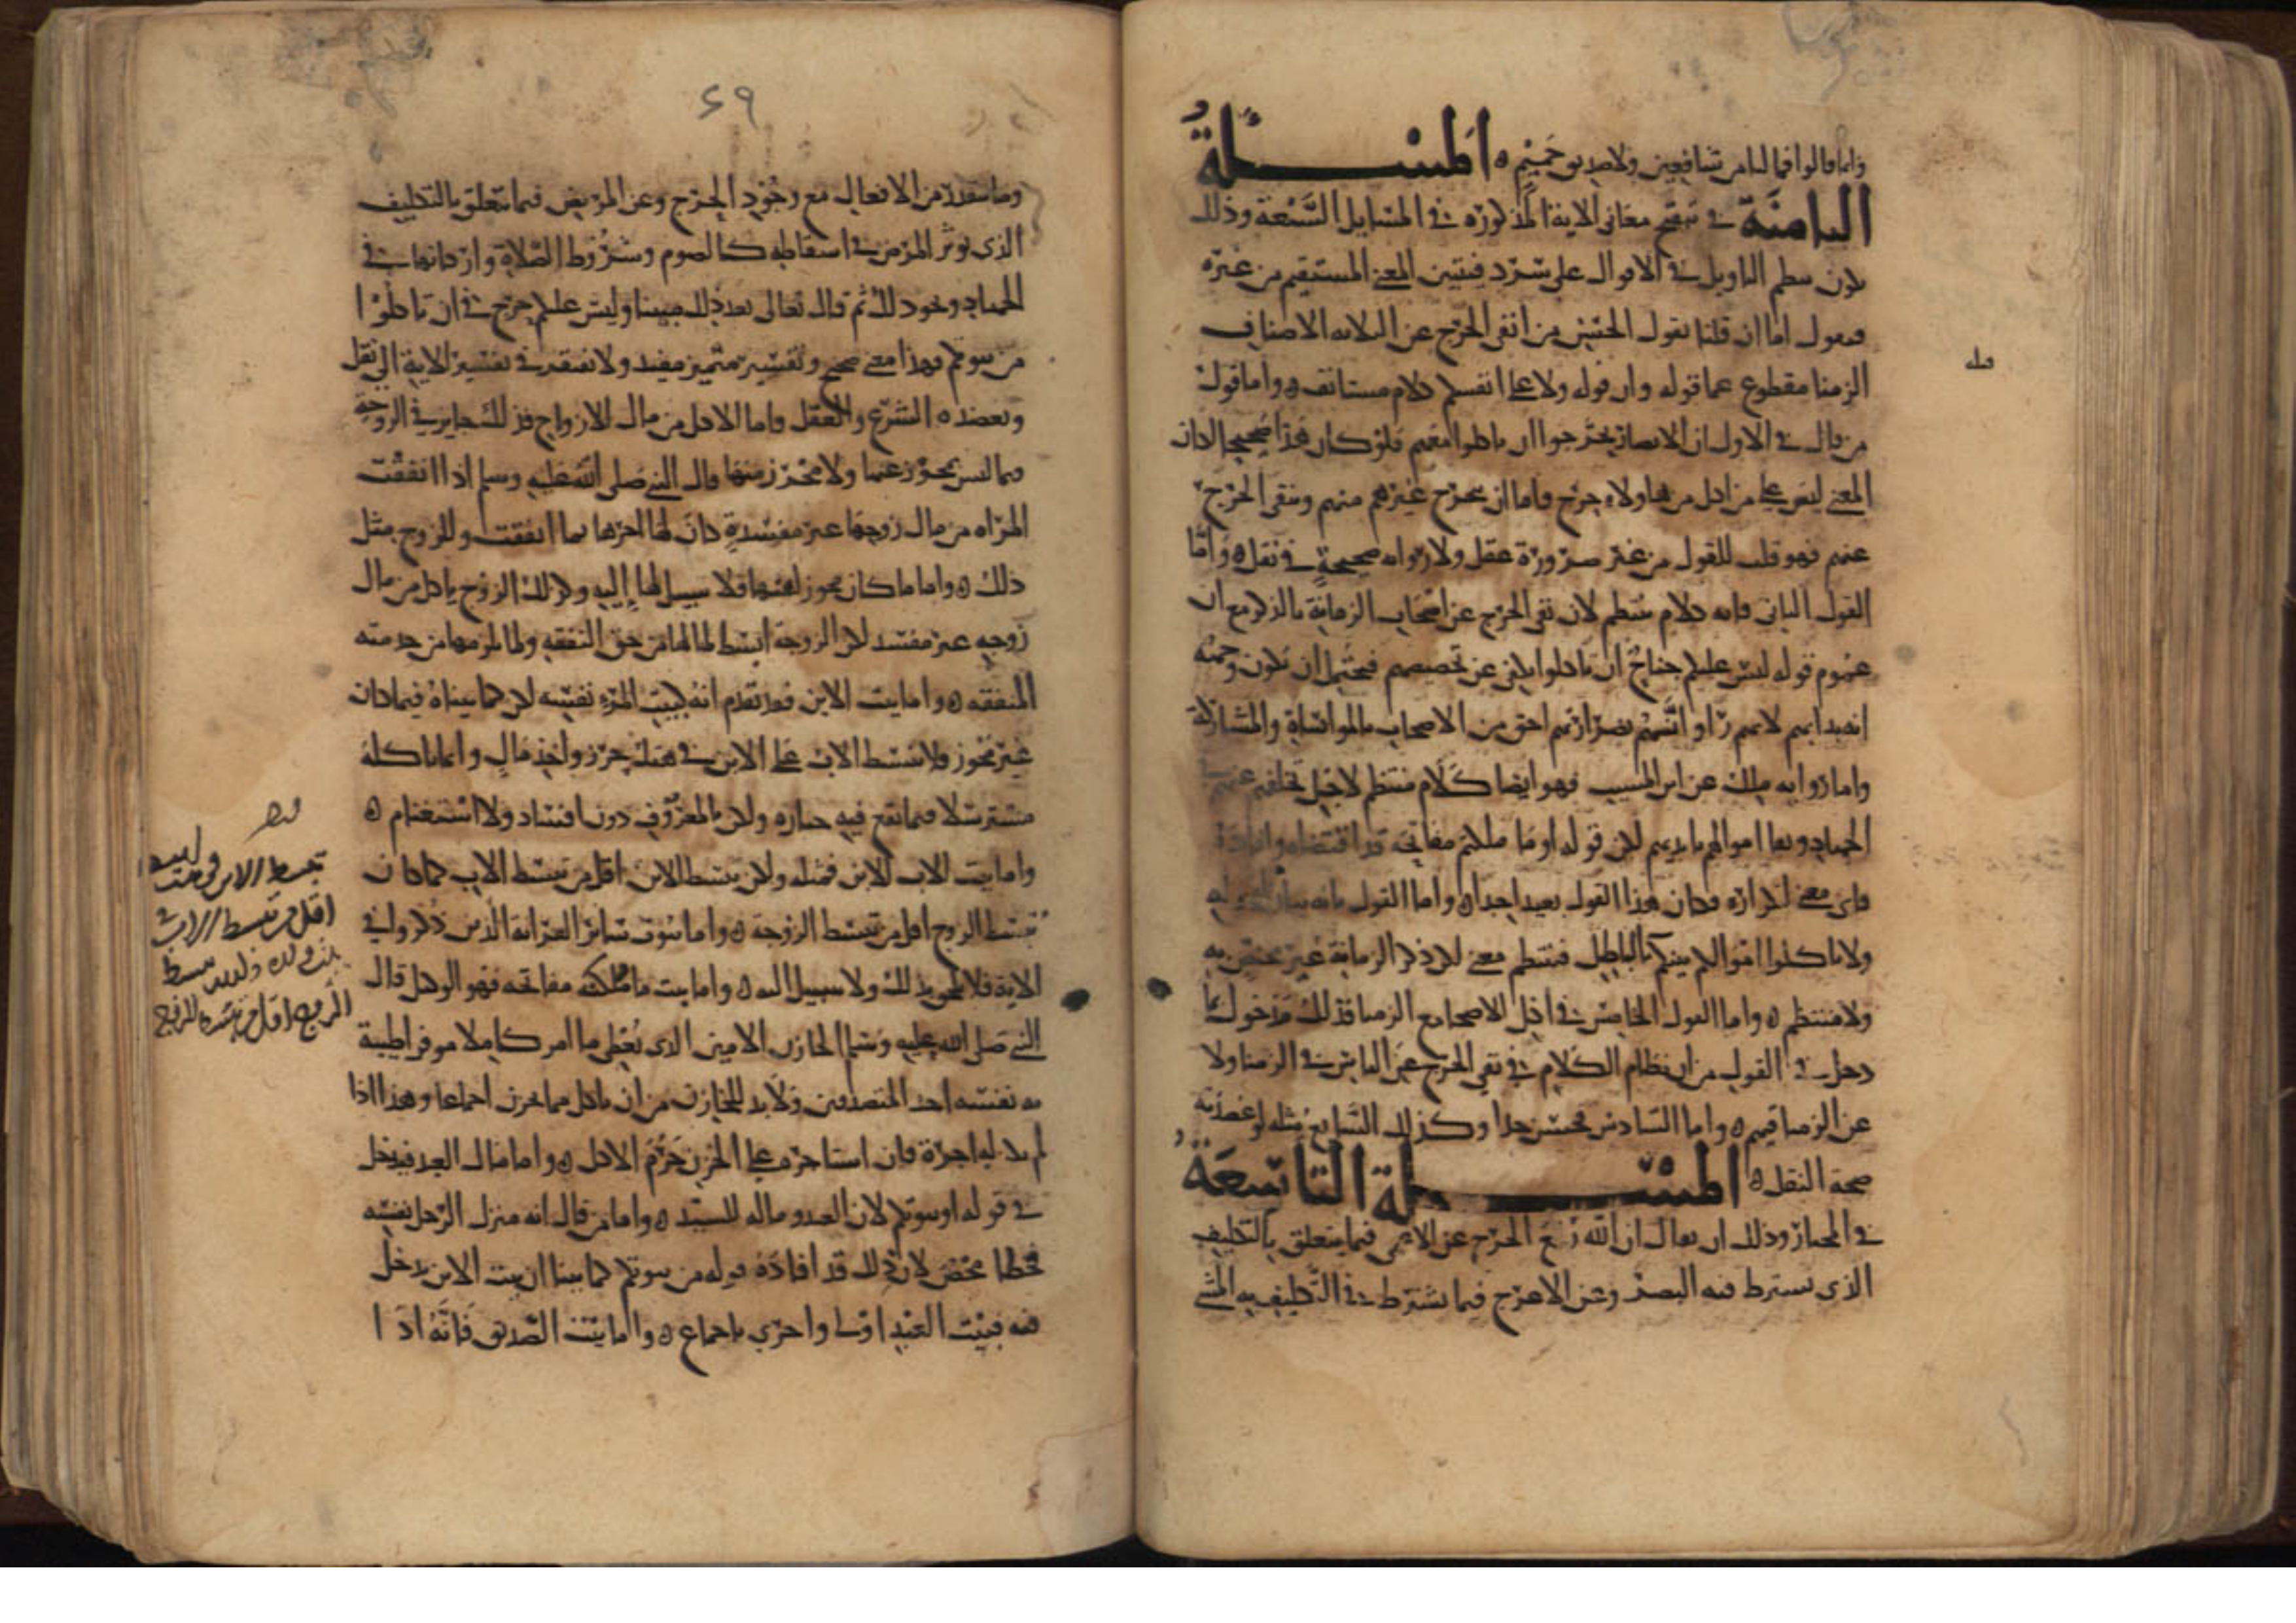 وانما قالوا فما لنا من شافعين ولا صديق حميم ه المسئلة
الثامنة في تنقيح معاني الاية المذكورة في المسايل السبعة وذلك
يكون بنظم التاويل في الاقوال على سرد فيتبين المعنى المستقيم من غيره
فنقول اما ان قلنا بقول الحسن من ان نفي الحرج عن الثلاثة الاصناف
الزمنا مقطوع عما قوله وان قوله ولا على انفسكم كلام مستانف ه واما قول
من قال في الاول ان الانصار تحرجوا ان ياكلوا معهم فلو كان هذا صحيحا لكان
المعنى ليس على من اكل من هاولاء حرج فاما ان يتحرج غيرهم منهم وينفى الحرج
عنهم فهو قلب للقول من غير ضرورة عقل ولا رواية صحيحة في نقل ه واما
القول الثاني فانه كلام ينتظم لان نفي الحرج عن اصحاب الزمانة بالذكر مع ان
عموم قوله ليس عليكم جناح ان تاكلوا يكفي عن تخصيصهم فيحتمل ان تكون وجهه
انه بدا بهم لانهم راوا انهم بضرارتهم احق من الاصحاب بالمواساة والمشاركة
واما رواية ملك عن ابن المسيب فهو ايضا كلام منتظم لاجل تخلفهم عنهم في
الجهاد وبقا اموالهم بايديهم لكن قوله او ما ملكتم مفاتحه قد اقتضاه وافاده
فاي معنى لتكراره فكان هذا القول بعيدا جدا ه واما القول بانه بيان لقوله
ولا تاكلوا اموالكم بينكم بالباطل فينتظم معنى لكن ذكر الزمانة غير مختص به
ولا منتظم ه واما القول الخامس في اكل الاصحا مع الزمنا فذلك مدخول بما
دخل في القول من ان نظام الكلام في نفي الحرج عن الناس في الزمنا ولا
عن الزمنا فيهم ه واما السادس فحسن جدا وكذلك السابع مثله لو عضدته
صحة النقل ه المسئلة التاسعة
في المختار وذلك ان يقال ان الله رفع الحرج عن الاعمى فيما يتعلق بالتكليف
الذي يشترط فيه البصر وعن الاعرج فيما يشترط في التكليف به المشي
قبله
٤٩
وما يتعذر من الافعال مع وجود الحرج وعن المريض فيما يتعلق بالتكليف
الذي يوثر المرض في اسقاطه كالصوم وشروط الصلاة واركانها في
الجهاد ونحو ذلك ثم قال تعالى بعد ذلك مبينا وليس عليكم حرج في ان تاكلوا
من بيوتكم فهذا معنى صحيح وتفسير متميز مفيد ولا نفتقر في تفسير الاية الى نقل
ويعضده الشرع والعقل فاما الاكل من مال الازواج فذلك جايز في الزوجة
فيما ليس بمحوز عنها ولا محرز منها قال النبي صلى الله عليه وسلم اذا انفقت
المراه من مال زوجها غير مفسدة كان لها اجرها بما انفقت وللزوج مثل
ذلك ه واما ما كان محوز عنها فلا سبيل لها اليه وكذلك الزوج ياكل من مال
زوجه غير مفسد لكن الزوجة ابسط لما لها من حق النفقه ولما يلزمها من خدمته
المنفقه ه واما بيت الابن فقد تقدم انه كبيت المرء نفسه لكن كما بيناه فيما كان
غير محوز ولا يتبسط الاب على الابن في هتك حرز واخذ مال وانما ياكله
مسترسلا فيما يقع فيه حيازه ولكن بالمعروف دون افساد ولا استغنام ه
واما بيت الاب للابن فمثله ولكن تبسط الابن اقل من تبسط الاب كما كان
تبسط الزوج اقل من تبسط الزوجة ه واما بيوت سائر القرابة الذين ذكروا في
الاية فلا يجوز ذلك ولا سبيل اليه ه واما بيت ما ملكتم مفاتحه فهو الوكيل قال
النبي صلى الله عليه وسلم الخازن الامين الذي يعطي ما امر كاملا موفرا طيبة
به نفسه احد المتصدقين ولا بد للخازن من ان ياكل مما يخزن اجماعا وهذا اذا
لم تكن له اجرة فان استاجره على الخزن حرم الاكل ه واما مال العبد فيدخل
في قوله او بيوتكم لان العبد وماله للسيد ه واما من قال انه منزل الرجل نفسه
فخطا محض لان ذلك قد افاده قوله من بيوتكم كما بينا ان بيت الابن يدخل
فيه فبيت العبد اولى واحرى باجماع ه واما بيت الصديق فانه اذا
تبسط الابن في بيت ابيه
اقل من تبسط الاب في
بيت ولده وكذلك تبسط
الزوج اقل من